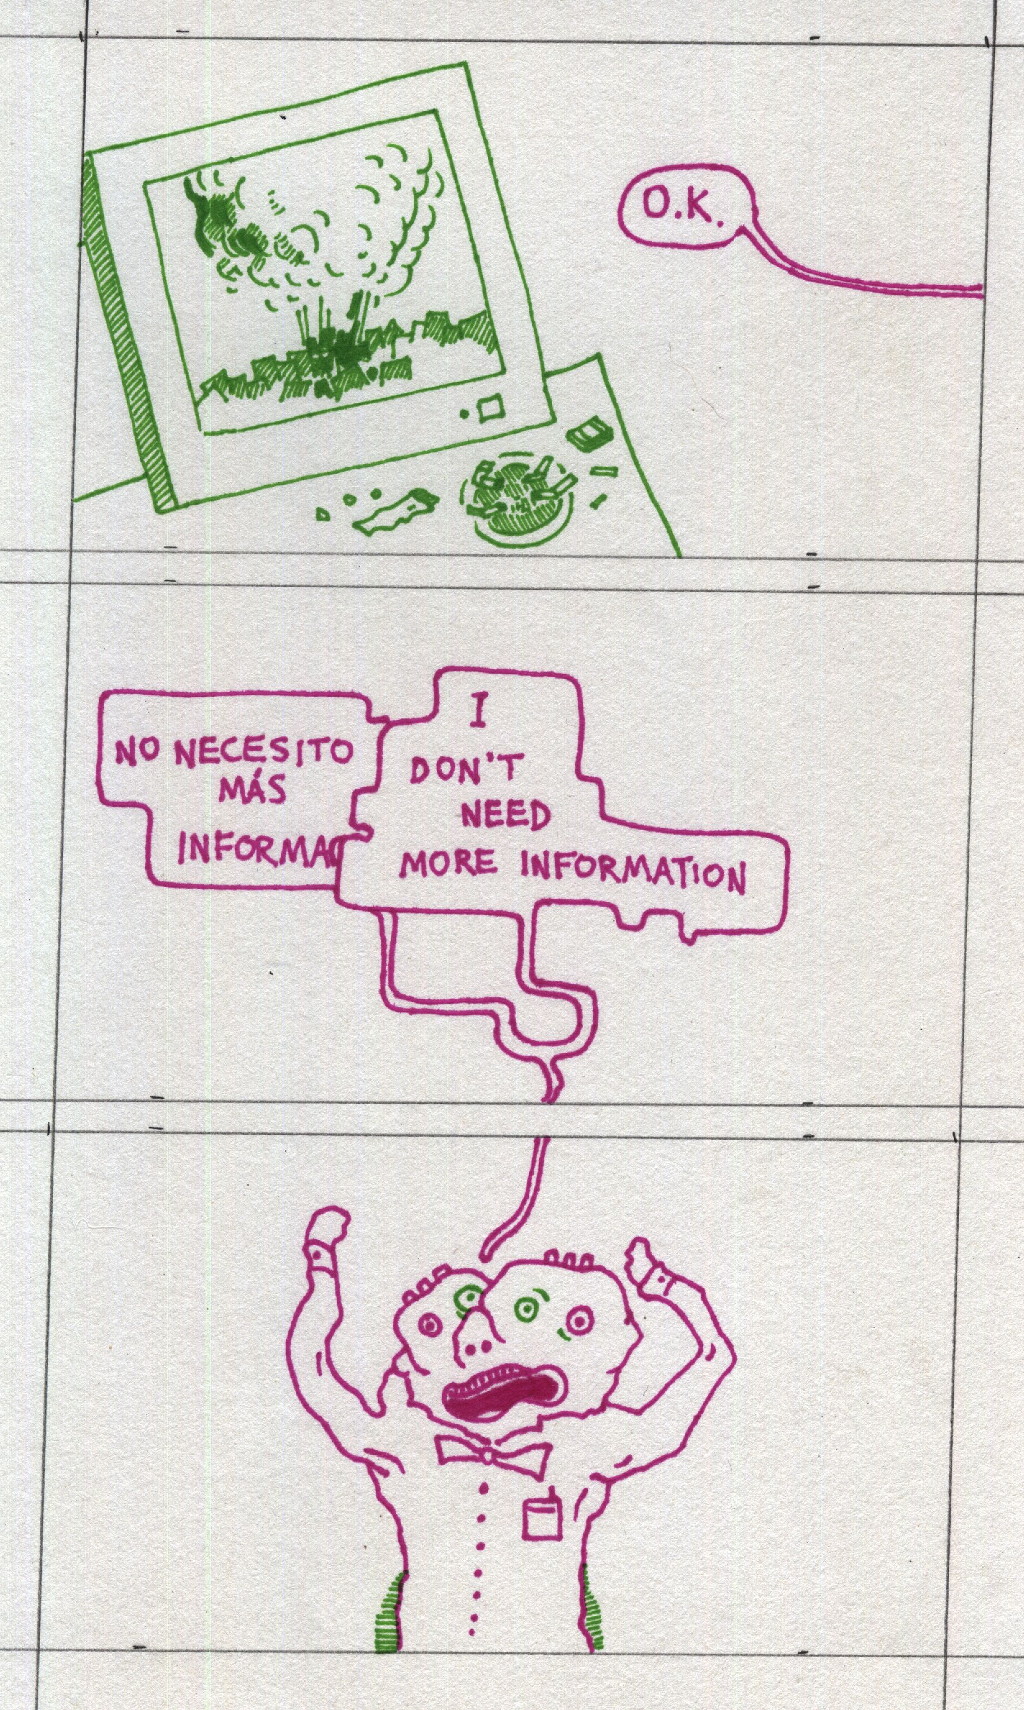 O.K.
NO NECESITO
MÁS
INFORMAC
I
DON'T
NEED
MORE INFORMATION